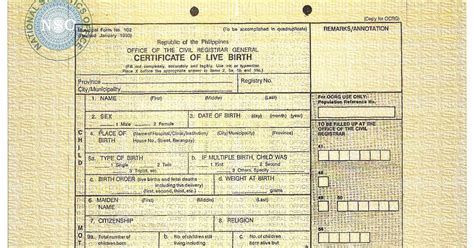 NATIONAL STATISTICS OFFICE
NSO
(Copy for OCRG)
Municipal Form No. 102
(Revised January 1993)
(To be accomplished in quadruplicate)
REMARKS/ANNOTATION
Republic of the Philippines
OFFICE OF THE CIVIL REGISTRAR GENERAL
CERTIFICATE OF LIVE BIRTH
(Fill out completely, accurately and legibly. Use ink or typewriter.
Place X before the appropriate answer in items 2, 5a, 5b and
Province
Registry No.
City/Municipality
FOR OCRG USE ONLY:
Population Reference No.
1. NAME (First) (Middle) (Last)
2. SEX
1 Male 2 Female
3. DATE OF BIRTH (day) (month) (year)
TO BE FILLED UP AT THE
OFFICE OF THE CIVIL
REGISTRAR
4. PLACE OF BIRTH
(Name of Hospital/Clinic/Institution/ (City/Municipality) (Province)
House No., Street, Barangay)
CHILD
5a. TYPE OF BIRTH
1 Single 2 Twin
3 Triplet, etc.
b. IF MULTIPLE BIRTH, CHILD WAS
1 First 2 Second
3 Others, Specify
c. BIRTH ORDER (live births and fetal deaths
including this delivery)
(first, second, third, etc.)
d. WEIGHT AT BIRTH
grams
6. MAIDEN NAME (First) (Middle) (Last)
7. CITIZENSHIP
8. RELIGION
MOT
9a. Total number of
children born
b. No. of children still
living including
c. No. of children born
alive but
41
49